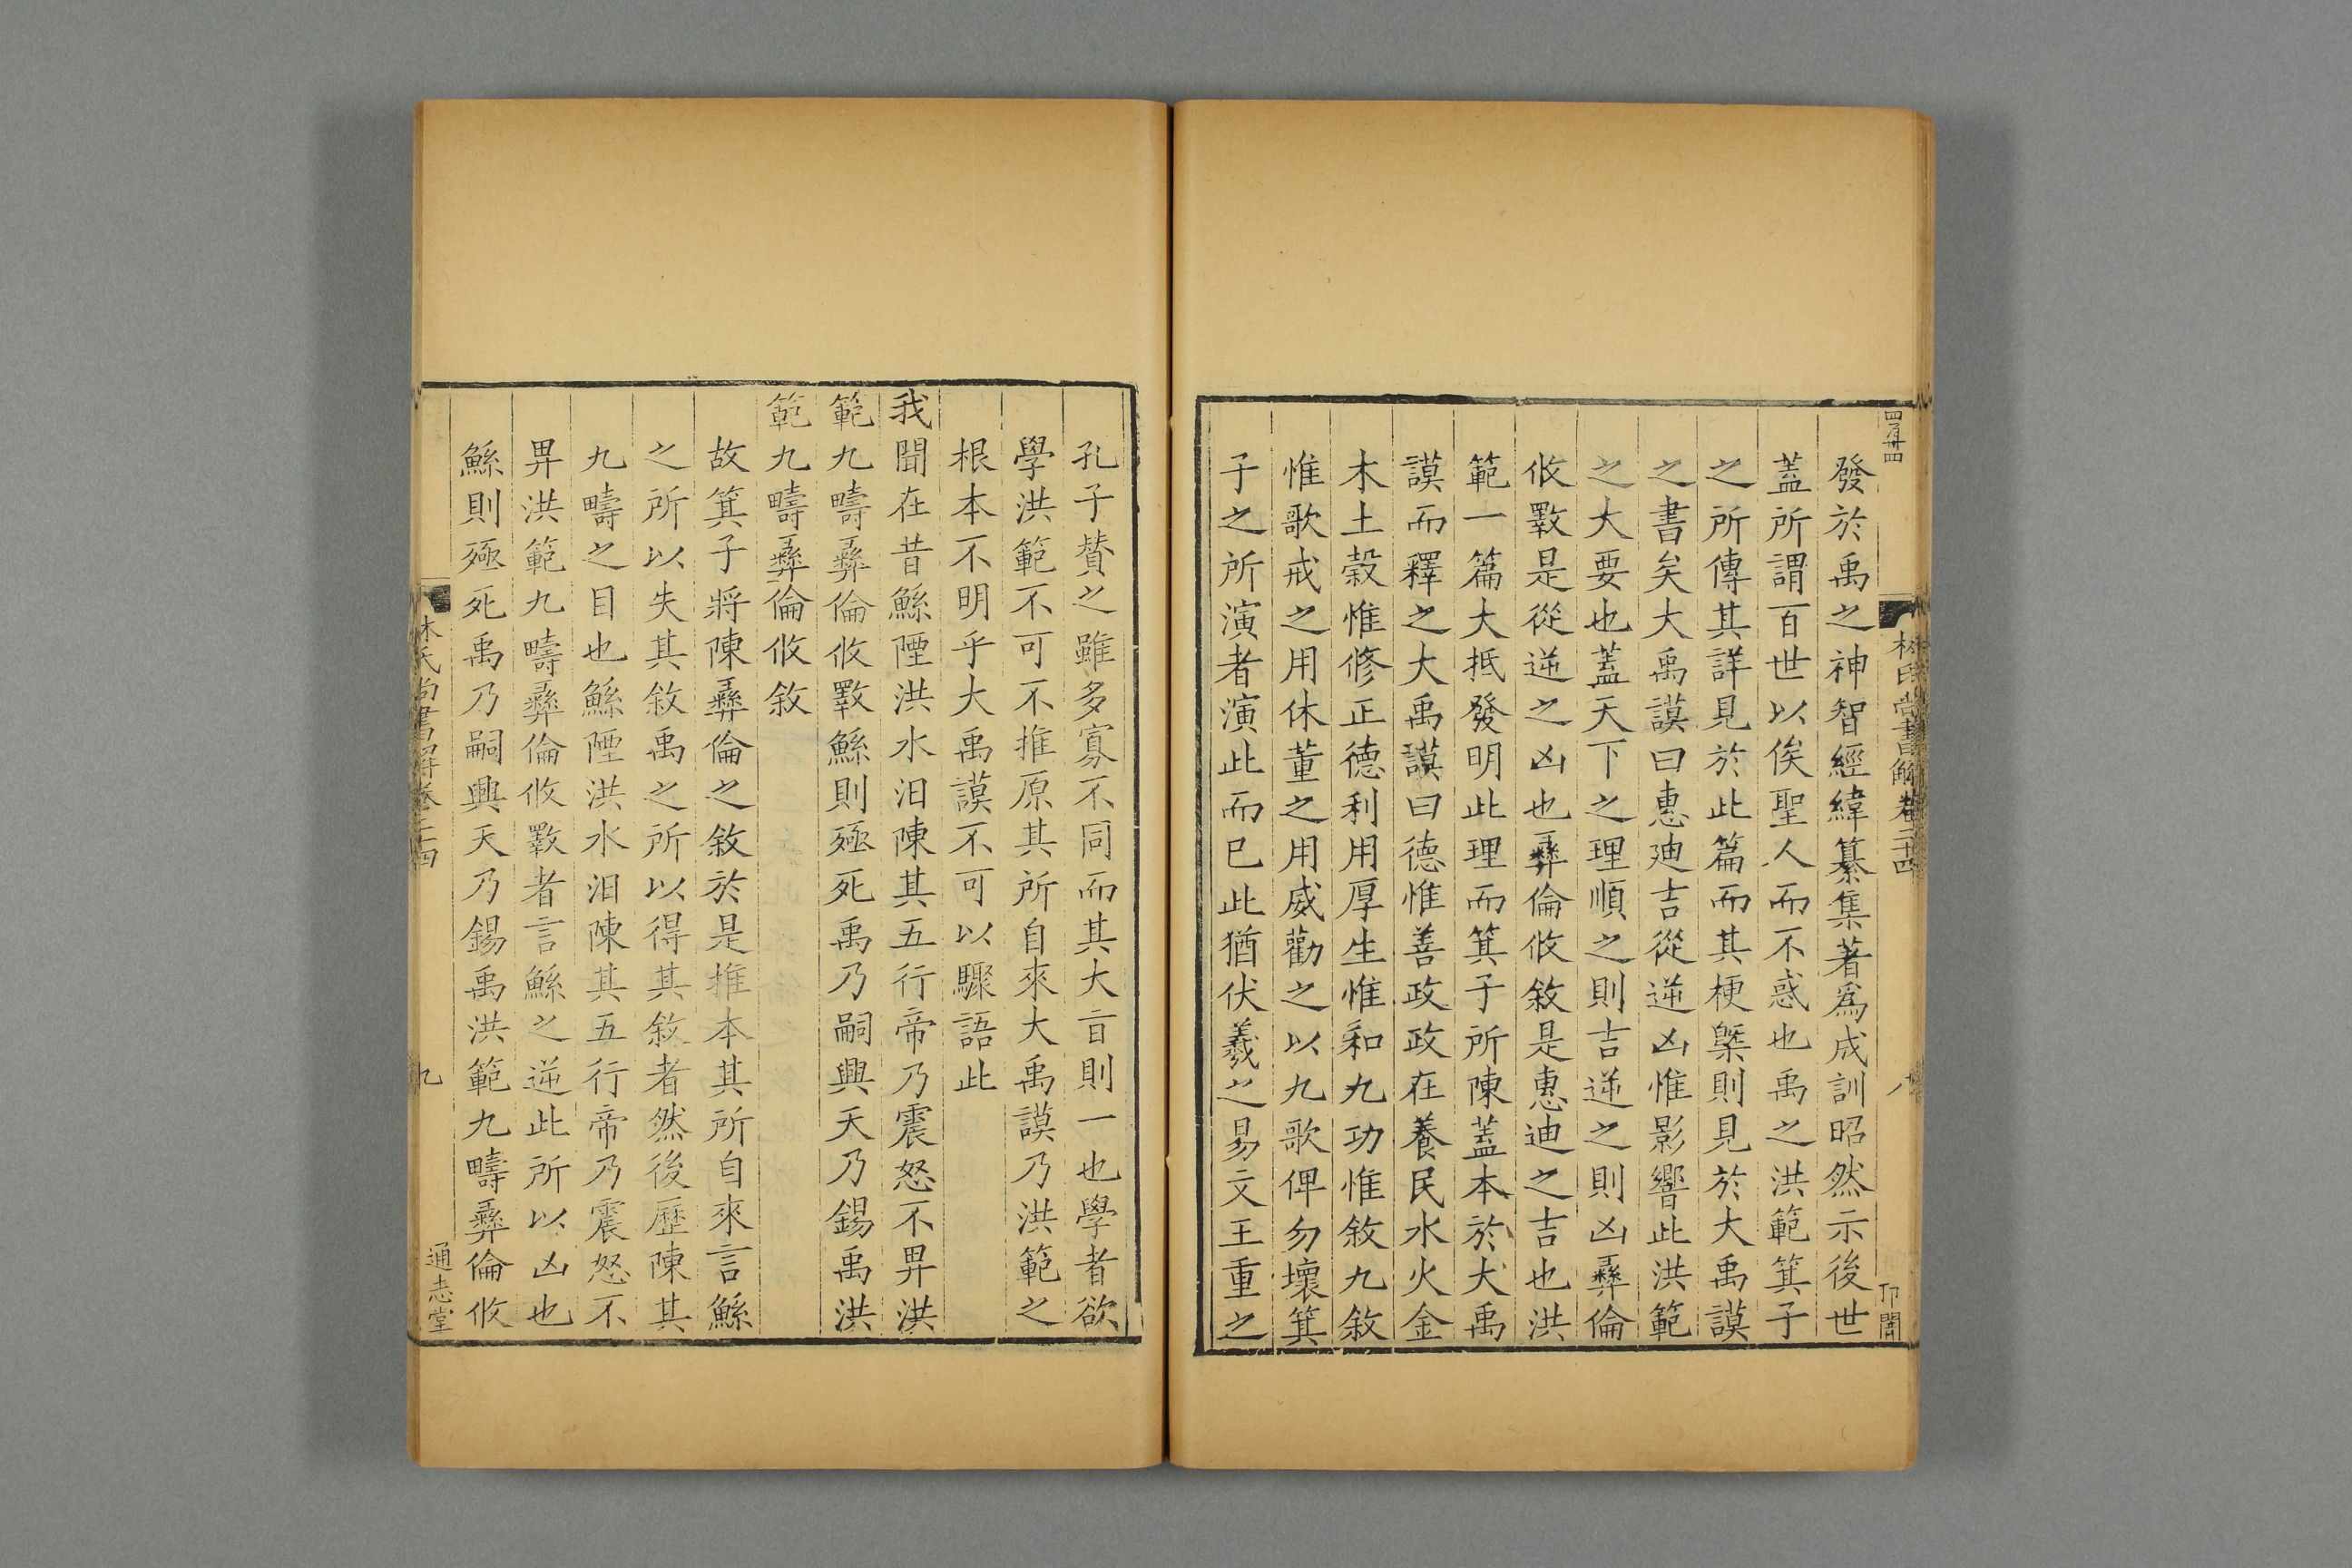 發於禹之神智經緯纂集著爲成訓昭然示後世
蓋所謂百世以俟聖人而不惑也禹之洪範箕子
之所傳其詳見於此篇而其梗槩則見於大禹謨
之書矣大禹謨曰惠迪吉從逆凶惟影響此洪範
之大要也蓋天下之理順之則吉逆之則凶彝倫
攸斁是從逆之凶也彝倫攸敘是惠迪之吉也洪
範一篇大抵發明此理而箕子所陳蓋本於大禹
謨而釋之大禹謨曰德惟善政政在養民水火金
木土穀惟修正德利用厚生惟和九功惟敘九敘
惟歌戒之用休董之用威勸之以九歌俾勿壞箕
子之所演者演此而已此猶伏羲之易文王重之
孔子贊之雖多寡不同而其大㫖則一也學者欲
學洪範不可不推原其所自來大禹謨乃洪範之
根本不明乎大禹謨不可以驟語此
我聞在昔鯀陻洪水汨陳其五行帝乃震怒不畀洪
範九疇彝倫攸斁鯀則殛死禹乃嗣興天乃錫禹洪
範九疇彝倫攸敘
故箕子將陳彝倫之敘於是推本其所自來言鯀
之所以失其敘禹之所以得其敘者然後歷陳其
九疇之目也鯀陻洪水汨陳其五行帝乃震怒不
畀洪範九疇彝倫攸斁者言鯀之逆此所以凶也
鯀則殛死禹乃嗣興天乃錫禹洪範九疇彝倫攸
林氏尚書解卷二十四
九
通志堂